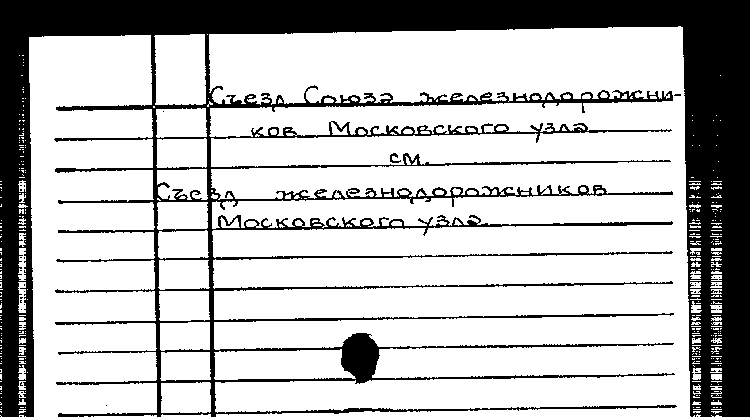 Съезд Союза железнодорожни-
ков Московского узла
см.
Съезд железнодорожников
Московского узла